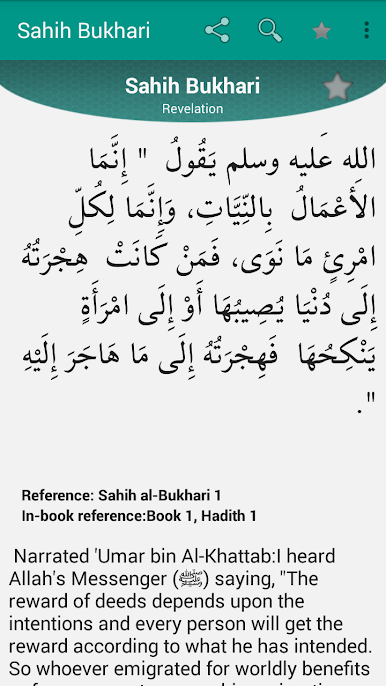 Sahih Bukhari
Sahih Bukhari
Revelation
الله عَليه وسلم يَقُولُ ‏ "‏ إِنَّمَا
الأَعْمَالُ بِالنِّيَّاتِ، وَإِنَّمَا لِكُلِّ
امْرِئٍ مَا نَوَى، فَمَنْ كَانَتْ هِجْرَتُهُ
إِلَى دُنْيَا يُصِيبُهَا أَوْ إِلَى امْرَأَةٍ
يَنْكِحُهَا فَهِجْرَتُهُ إِلَى مَا هَاجَرَ إِلَيْهِ
‏"‏‏.‏
Reference: Sahih al-Bukhari 1
In-book reference:Book 1, Hadith 1
Narrated 'Umar bin Al-Khattab:I heard
Allah's Messenger (ﷺ) saying, "The
reward of deeds depends upon the
intentions and every person will get the
reward according to what he has intended.
So whoever emigrated for worldly benefits